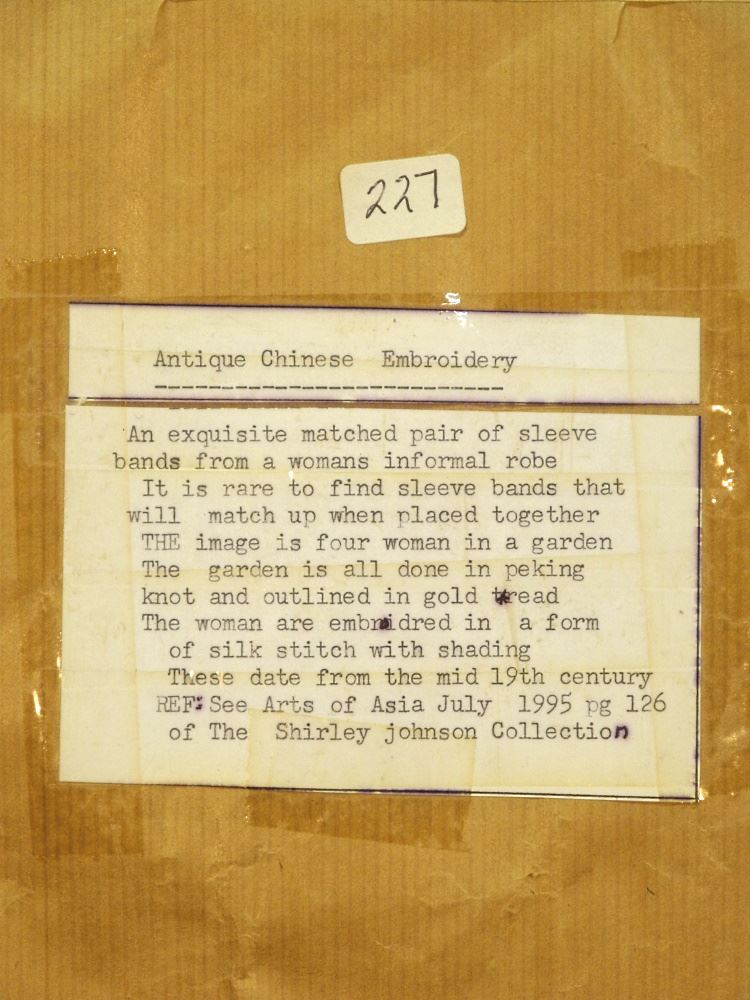 227
Antique Chinese Embroidery
--------------------------
An exquisite matched pair of sleeve
bands from a womans informal robe
It is rare to find sleeve bands that
will match up when placed together
THE image is four woman in a garden
The garden is all done in peking
knot and outlined in gold tread
The woman are embroidred in a form
of silk stitch with shading
These date from the mid 19th century
REF: See Arts of Asia July 1995 pg 126
of The Shirley johnson Collection